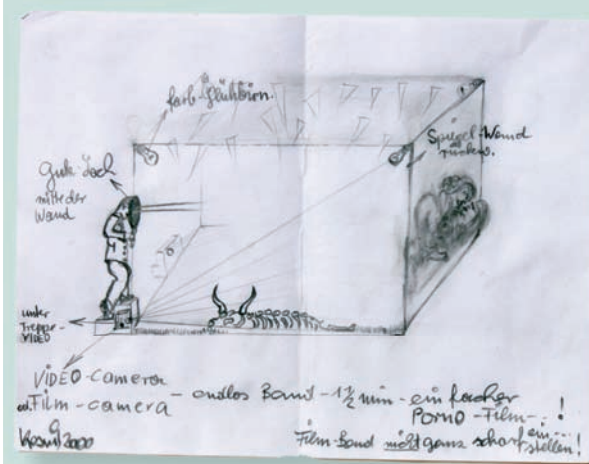 farb-Glühbirn.
Spiegel-Wand
rückw.
Guk-Loch
mitte der
Wand
unter
Treppe-
VIDEO
VIDEO-Camera
od. Film-camera
- endlos Band - 1½ min - ein facher
PORNO-Film--!
Film-Band nicht ganz scharf ein--
stellen!
2000